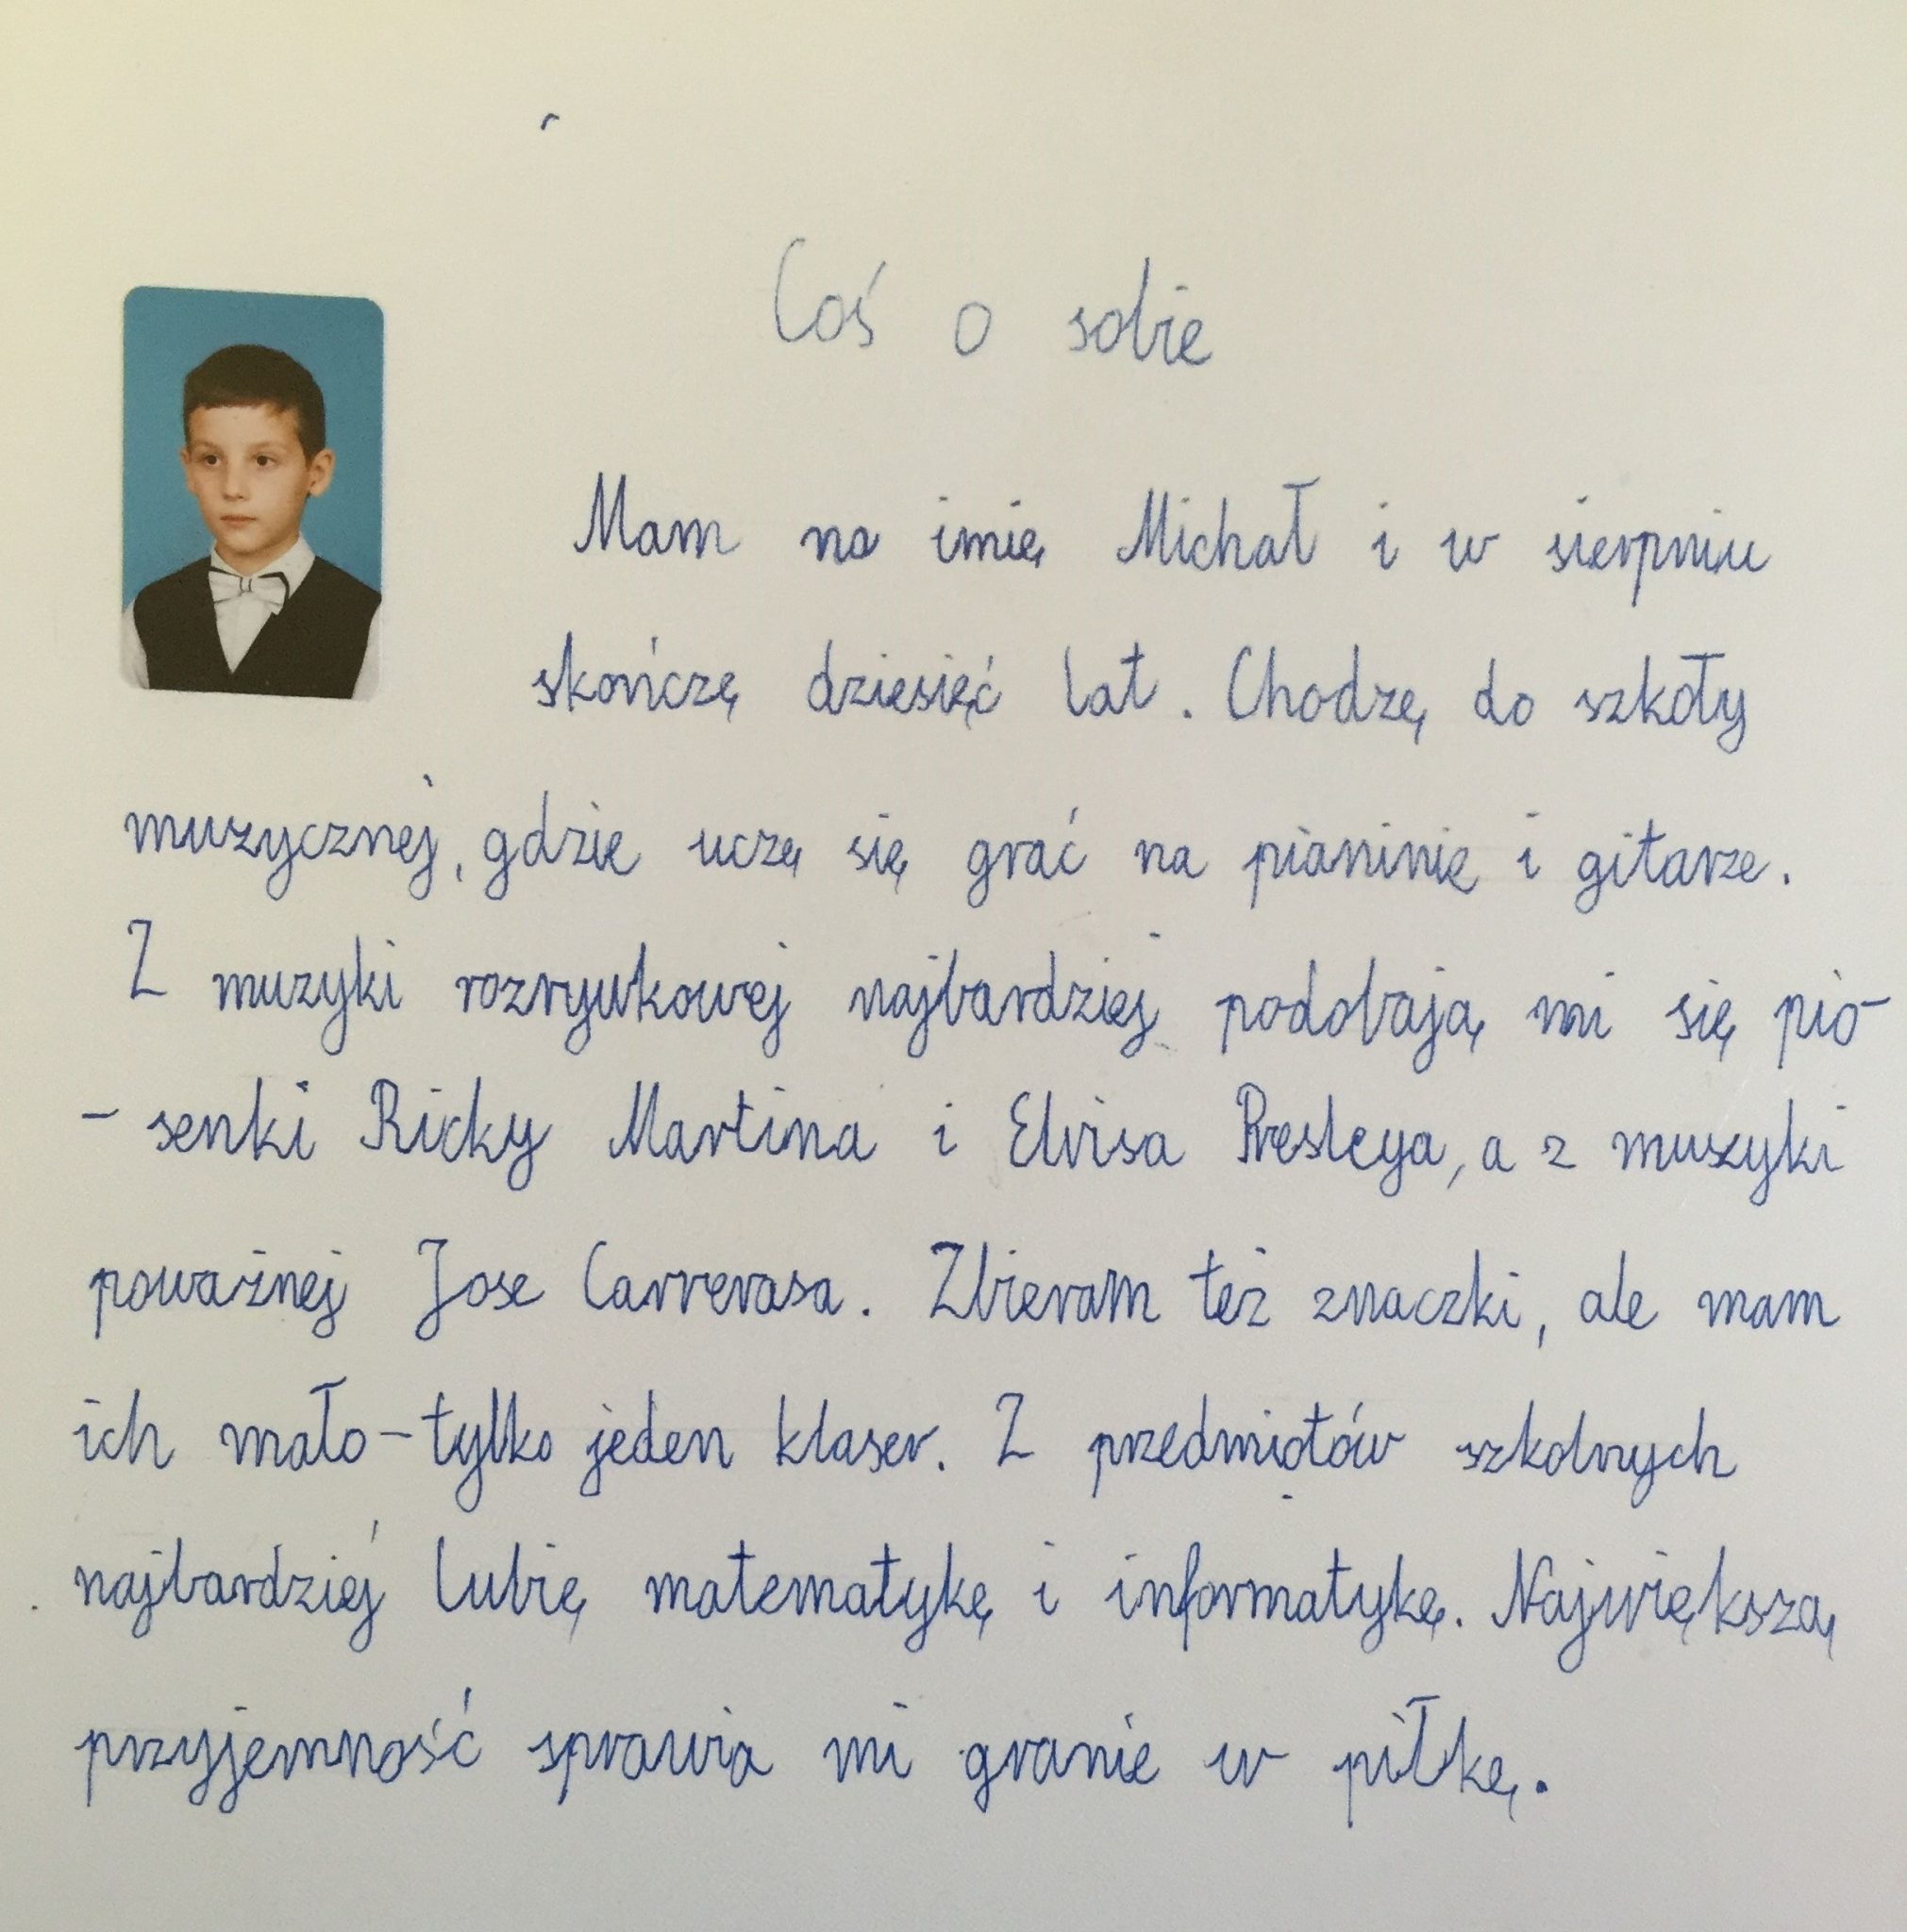 Coś o sobie
Mam na imię Michał i w sierpniu
skończę dziesięć lat. Chodzę do szkoły
muzycznej, gdzie uczę się grać na pianinie i gitarze.
Z muzyki rozrywkowej najbardziej podobają mi się pio-
- senki Ricky Martina i Elvisa Presleya, a z muzyki
poważnej Jose Carrerasa. Zbieram też znaczki, ale mam
ich mało - tylko jeden klaser. Z przedmiotów szkolnych
najbardziej lubię matematykę i informatykę. Największą
przyjemność sprawia mi granie w piłkę.